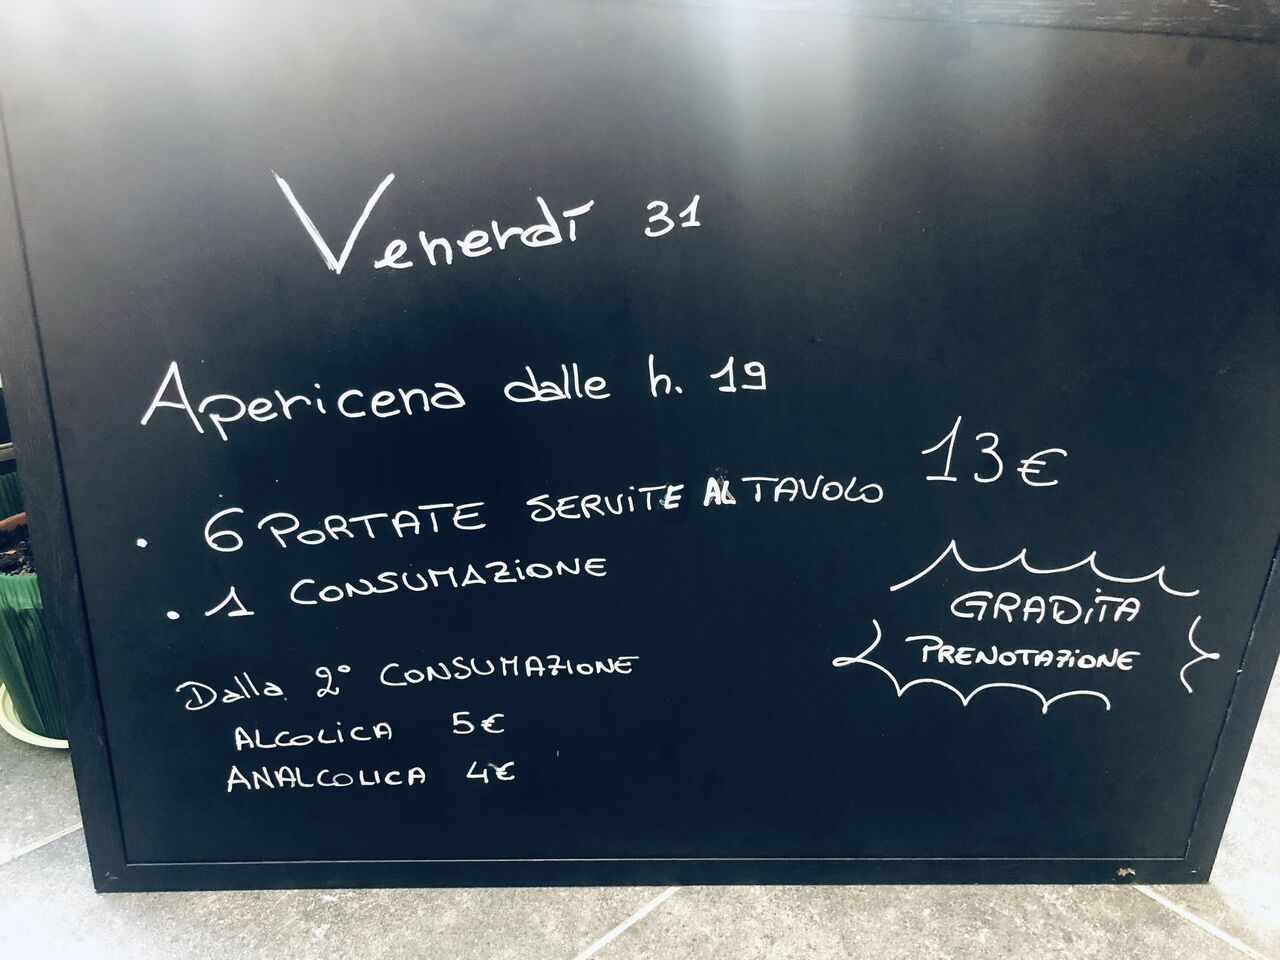 Venerdì 31
Apericena dalle h. 19
13€
• 6 PORTATE SERVITE AL TAVOLO
• 1 CONSUMAZIONE
GRADITA
PRENOTAZIONE
Dalla 2° CONSUMAZIONE
ALCOLICA 5€
ANALCOLICA 4€